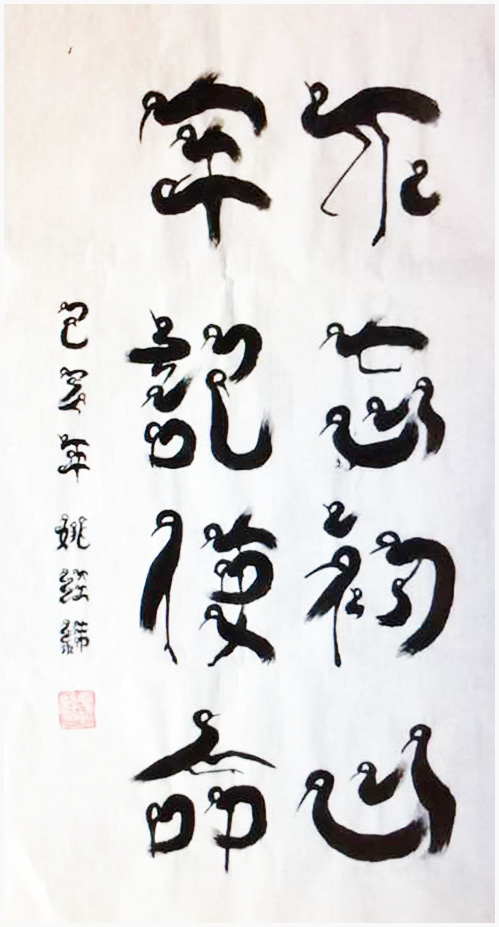 不忘初心
牢記使命
己亥年 姚經緯